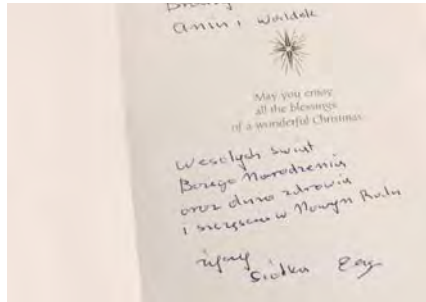 Anin i Waldek
May you enjoy
all the blessings
of a wonderful Christmas
Wesołych świąt
Bożego Narodzenia
oraz dużo zdrowia
i szczęścia w Nowym Roku
życzy